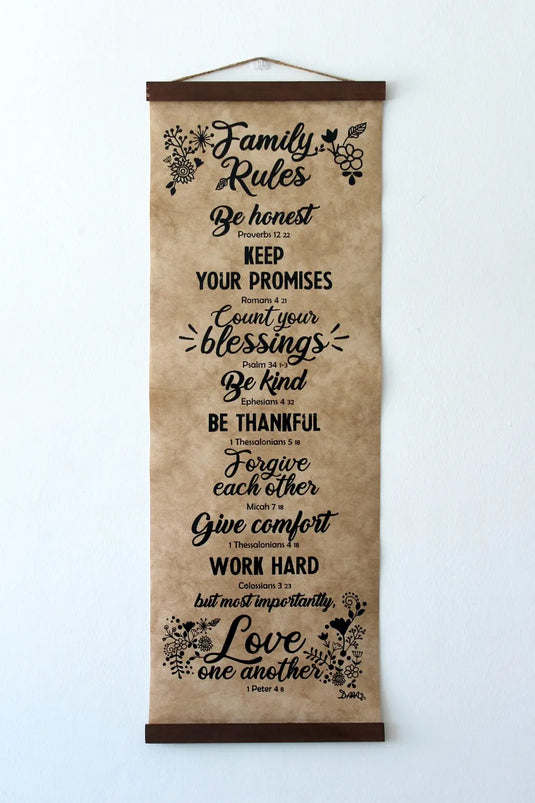 Family
Rules
Be honest
Proverbs 12 22
KEEP
YOUR PROMISES
Romans 4 21
Count your
blessings
Psalm 34 1-3
Be kind
Ephesians 4 32
BE THANKFUL
1 Thessalonians 5 18
Forgive
each other
Micah 7 18
Give comfort
1 Thessalonians 4 18
WORK HARD
Colossians 3 23
but most importantly,
Love
one another
1 Peter 4 8